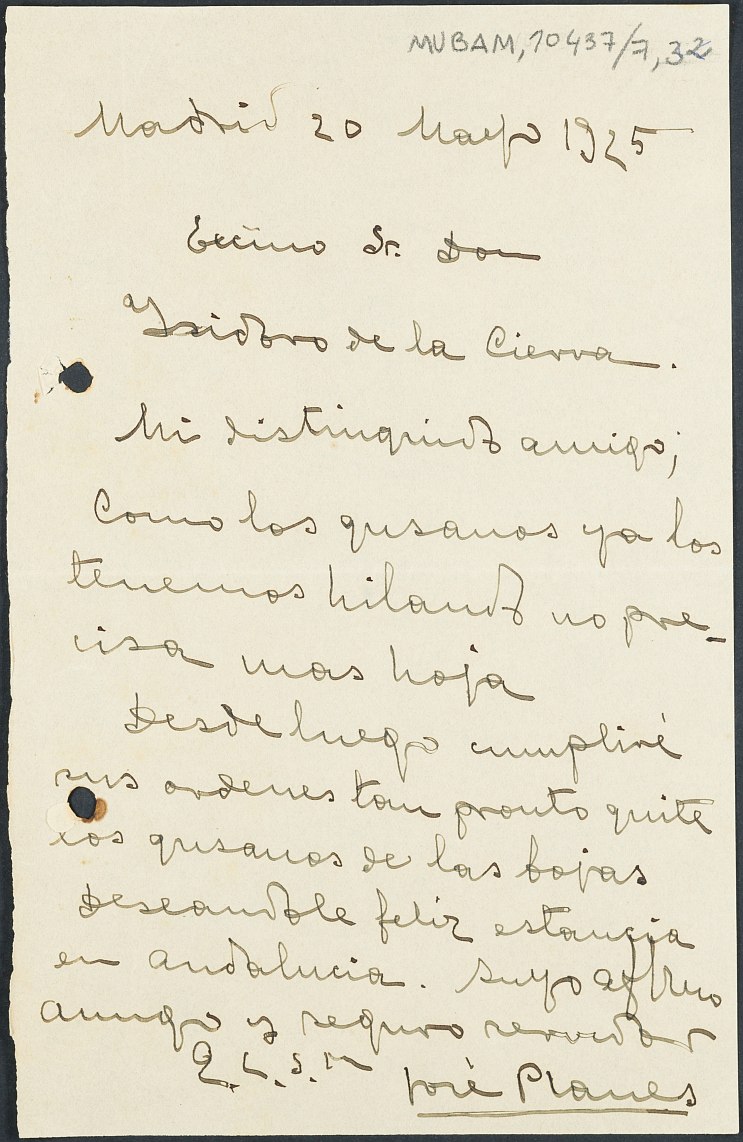 MUBAM, 10437/7, 32
Madrid 20 Mayo 1925
Excmo Sr. Don
Ysidoro de la Cierva.
Mi distinguido amigo;
Como los gusanos ya los
tenemos hilando no pre-
cisa mas hoja
Desde luego cumpliré
sus ordenes tan pronto quite
los gusanos de las bojas
Deseandole feliz estancia
en Andalucia. Suyo affmo
amigo y seguro servidor
Q. L. S. M
José Planes